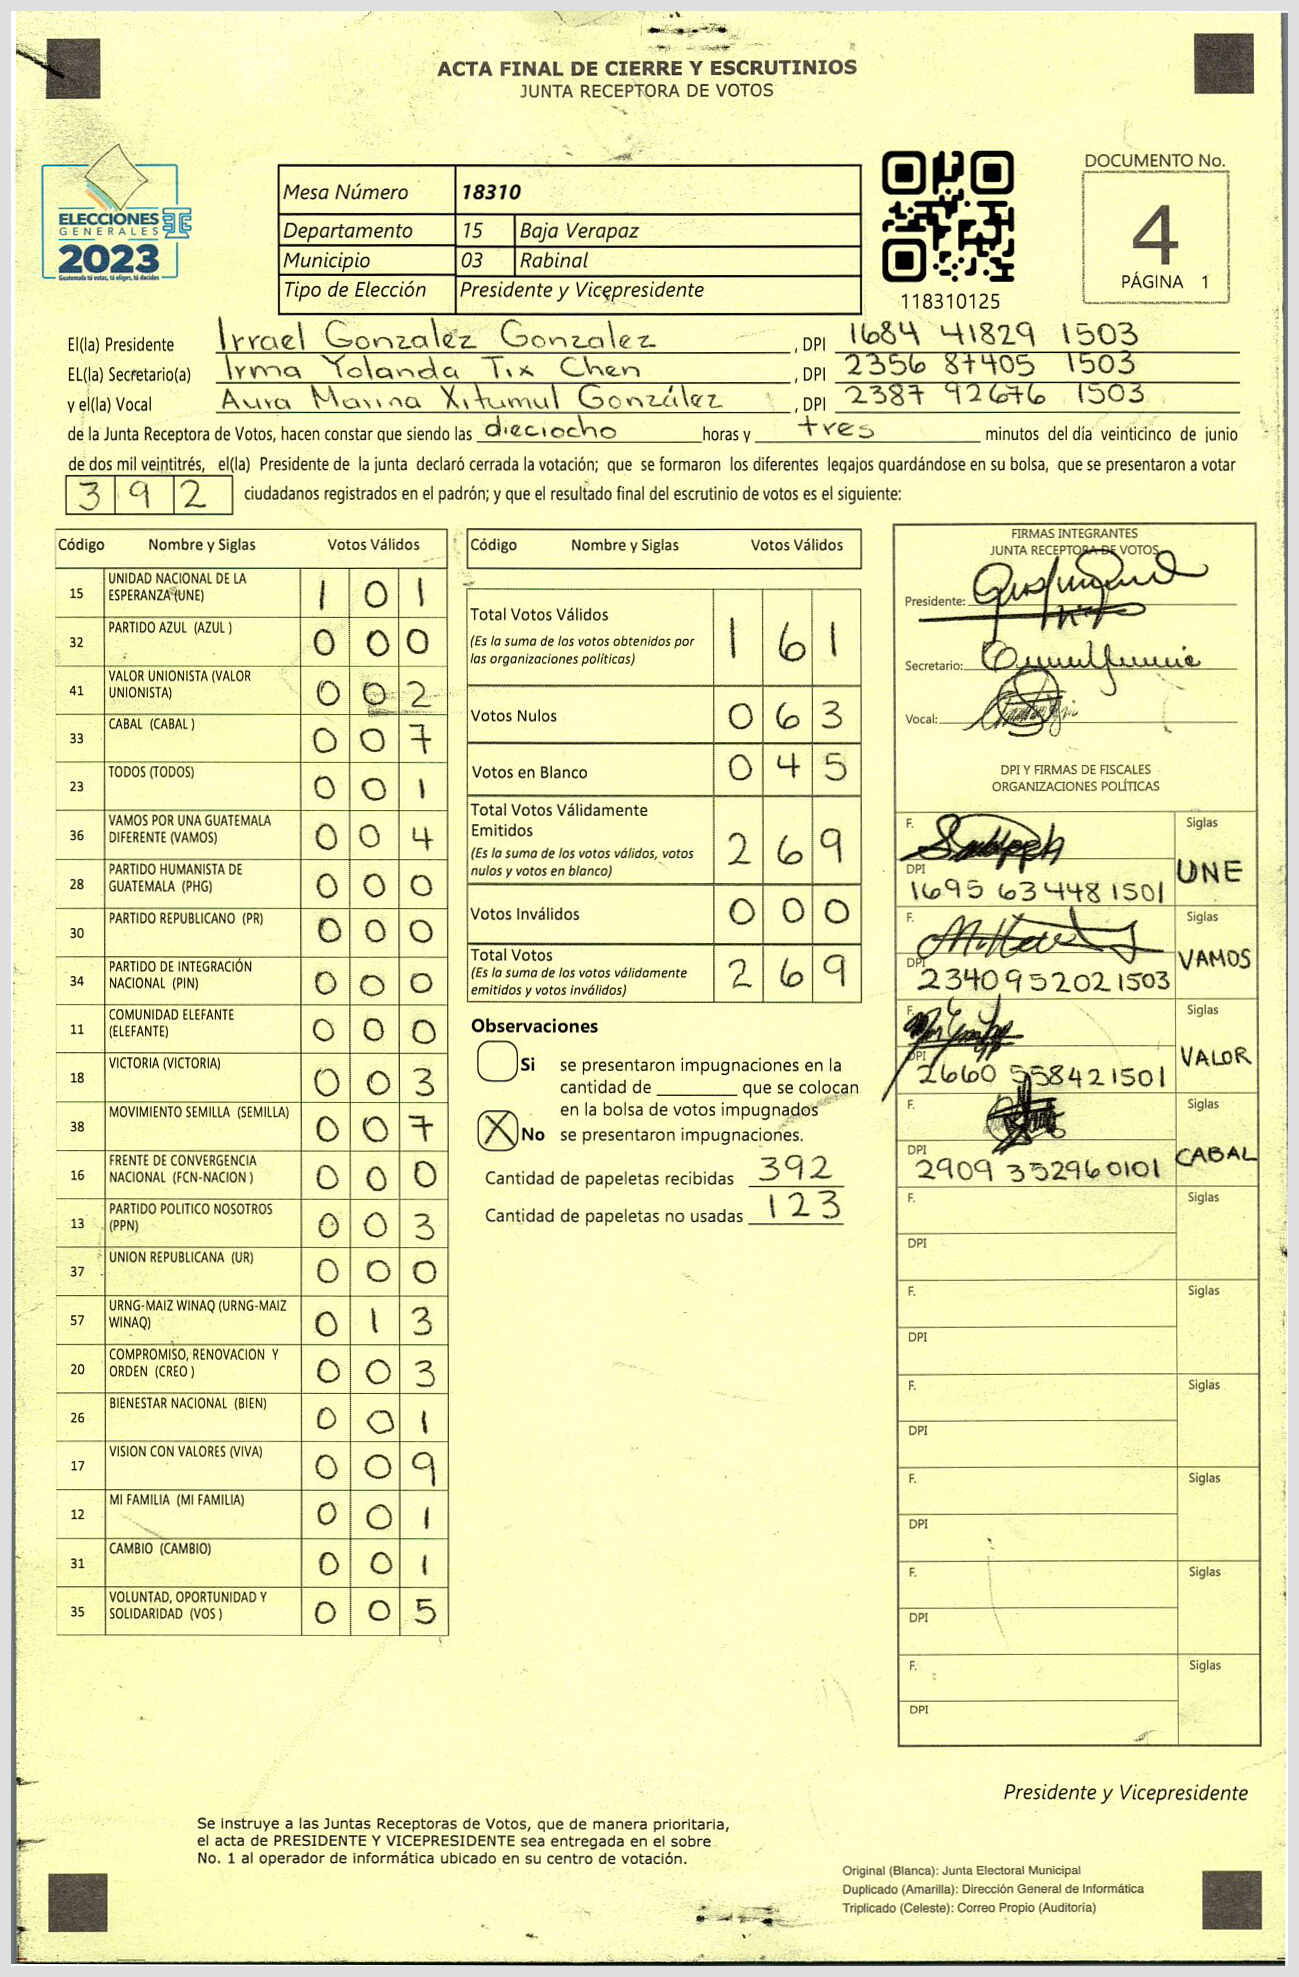 ACTA FINAL DE CIERRE Y ESCRUTINIOS
JUNTA RECEPTORA DE VOTOS
ELECCIONES
GENERALES
2023
Guatemala tú votas, tú eliges, tú decides
Mesa Número 18310
Departamento 15 Baja Verapaz
Municipio 03 Rabinal
Tipo de Elección Presidente y Vicepresidente
118310125
DOCUMENTO No.
4
PÁGINA 1
El(la) Presidente Irrael Gonzalez Gonzalez, DPI 1684 41829 1503
EL(la) Secretario(a) Irma Yolanda Tix Chen, DPI 2356 87405 1503
y el(la) Vocal Aura Marina Xitumul González, DPI 2387 92676 1503
de la Junta Receptora de Votos, hacen constar que siendo las dieciocho horas y tres minutos del día veinticinco de junio
de dos mil veintitrés, el(la) Presidente de la junta declaró cerrada la votación; que se formaron los diferentes legajos guardándose en su bolsa, que se presentaron a votar
392 ciudadanos registrados en el padrón; y que el resultado final del escrutinio de votos es el siguiente:
Código Nombre y Siglas Votos Válidos
15 UNIDAD NACIONAL DE LA ESPERANZA (UNE) 1 0 1
32 PARTIDO AZUL (AZUL ) 0 0 0
41 VALOR UNIONISTA (VALOR UNIONISTA) 0 0 2
33 CABAL (CABAL ) 0 0 7
23 TODOS (TODOS) 0 0 1
36 VAMOS POR UNA GUATEMALA DIFERENTE (VAMOS) 0 0 4
28 PARTIDO HUMANISTA DE GUATEMALA (PHG) 0 0 0
30 PARTIDO REPUBLICANO (PR) 0 0 0
34 PARTIDO DE INTEGRACIÓN NACIONAL (PIN) 0 0 0
11 COMUNIDAD ELEFANTE (ELEFANTE) 0 0 0
18 VICTORIA (VICTORIA) 0 0 3
38 MOVIMIENTO SEMILLA (SEMILLA) 0 0 7
16 FRENTE DE CONVERGENCIA NACIONAL (FCN-NACION ) 0 0 0
13 PARTIDO POLITICO NOSOTROS (PPN) 0 0 3
37 UNION REPUBLICANA (UR) 0 0 0
57 URNG-MAIZ WINAQ (URNG-MAIZ WINAQ) 0 1 3
20 COMPROMISO, RENOVACION Y ORDEN (CREO ) 0 0 3
26 BIENESTAR NACIONAL (BIEN) 0 0 1
17 VISION CON VALORES (VIVA) 0 0 9
12 MI FAMILIA (MI FAMILIA) 0 0 1
31 CAMBIO (CAMBIO) 0 0 1
35 VOLUNTAD, OPORTUNIDAD Y SOLIDARIDAD (VOS ) 0 0 5
Código Nombre y Siglas Votos Válidos
Total Votos Válidos 1 6 1
(Es la suma de los votos obtenidos por
las organizaciones políticas)
Votos Nulos 0 6 3
Votos en Blanco 0 4 5
Total Votos Válidamente
Emitidos 2 6 9
(Es la suma de los votos válidos, votos
nulos y votos en blanco)
Votos Inválidos 0 0 0
Total Votos 2 6 9
(Es la suma de los votos válidamente
emitidos y votos inválidos)
Observaciones
Si se presentaron impugnaciones en la
cantidad de ________ que se colocan
en la bolsa de votos impugnados
X No se presentaron impugnaciones.
Cantidad de papeletas recibidas 392
Cantidad de papeletas no usadas 123
FIRMAS INTEGRANTES
JUNTA RECEPTORA DE VOTOS
Presidente:
Secretario:
Vocal:
DPI Y FIRMAS DE FISCALES
ORGANIZACIONES POLÍTICAS
F. Siglas
UNE
DPI
1695 63448 1501
F. Siglas
VAMOS
DPI
2340 95202 1503
F. Siglas
VALOR
DPI
2660 55842 1501
F. Siglas
CABAL
DPI
2909 35296 0101
F. Siglas
DPI
F. Siglas
DPI
F. Siglas
DPI
F. Siglas
DPI
F. Siglas
DPI
F. Siglas
DPI
Presidente y Vicepresidente
Se instruye a las Juntas Receptoras de Votos, que de manera prioritaria,
el acta de PRESIDENTE Y VICEPRESIDENTE sea entregada en el sobre
No. 1 al operador de informática ubicado en su centro de votación.
Original (Blanca): Junta Electoral Municipal
Duplicado (Amarilla): Dirección General de Informática
Triplicado (Celeste): Correo Propio (Auditoría)